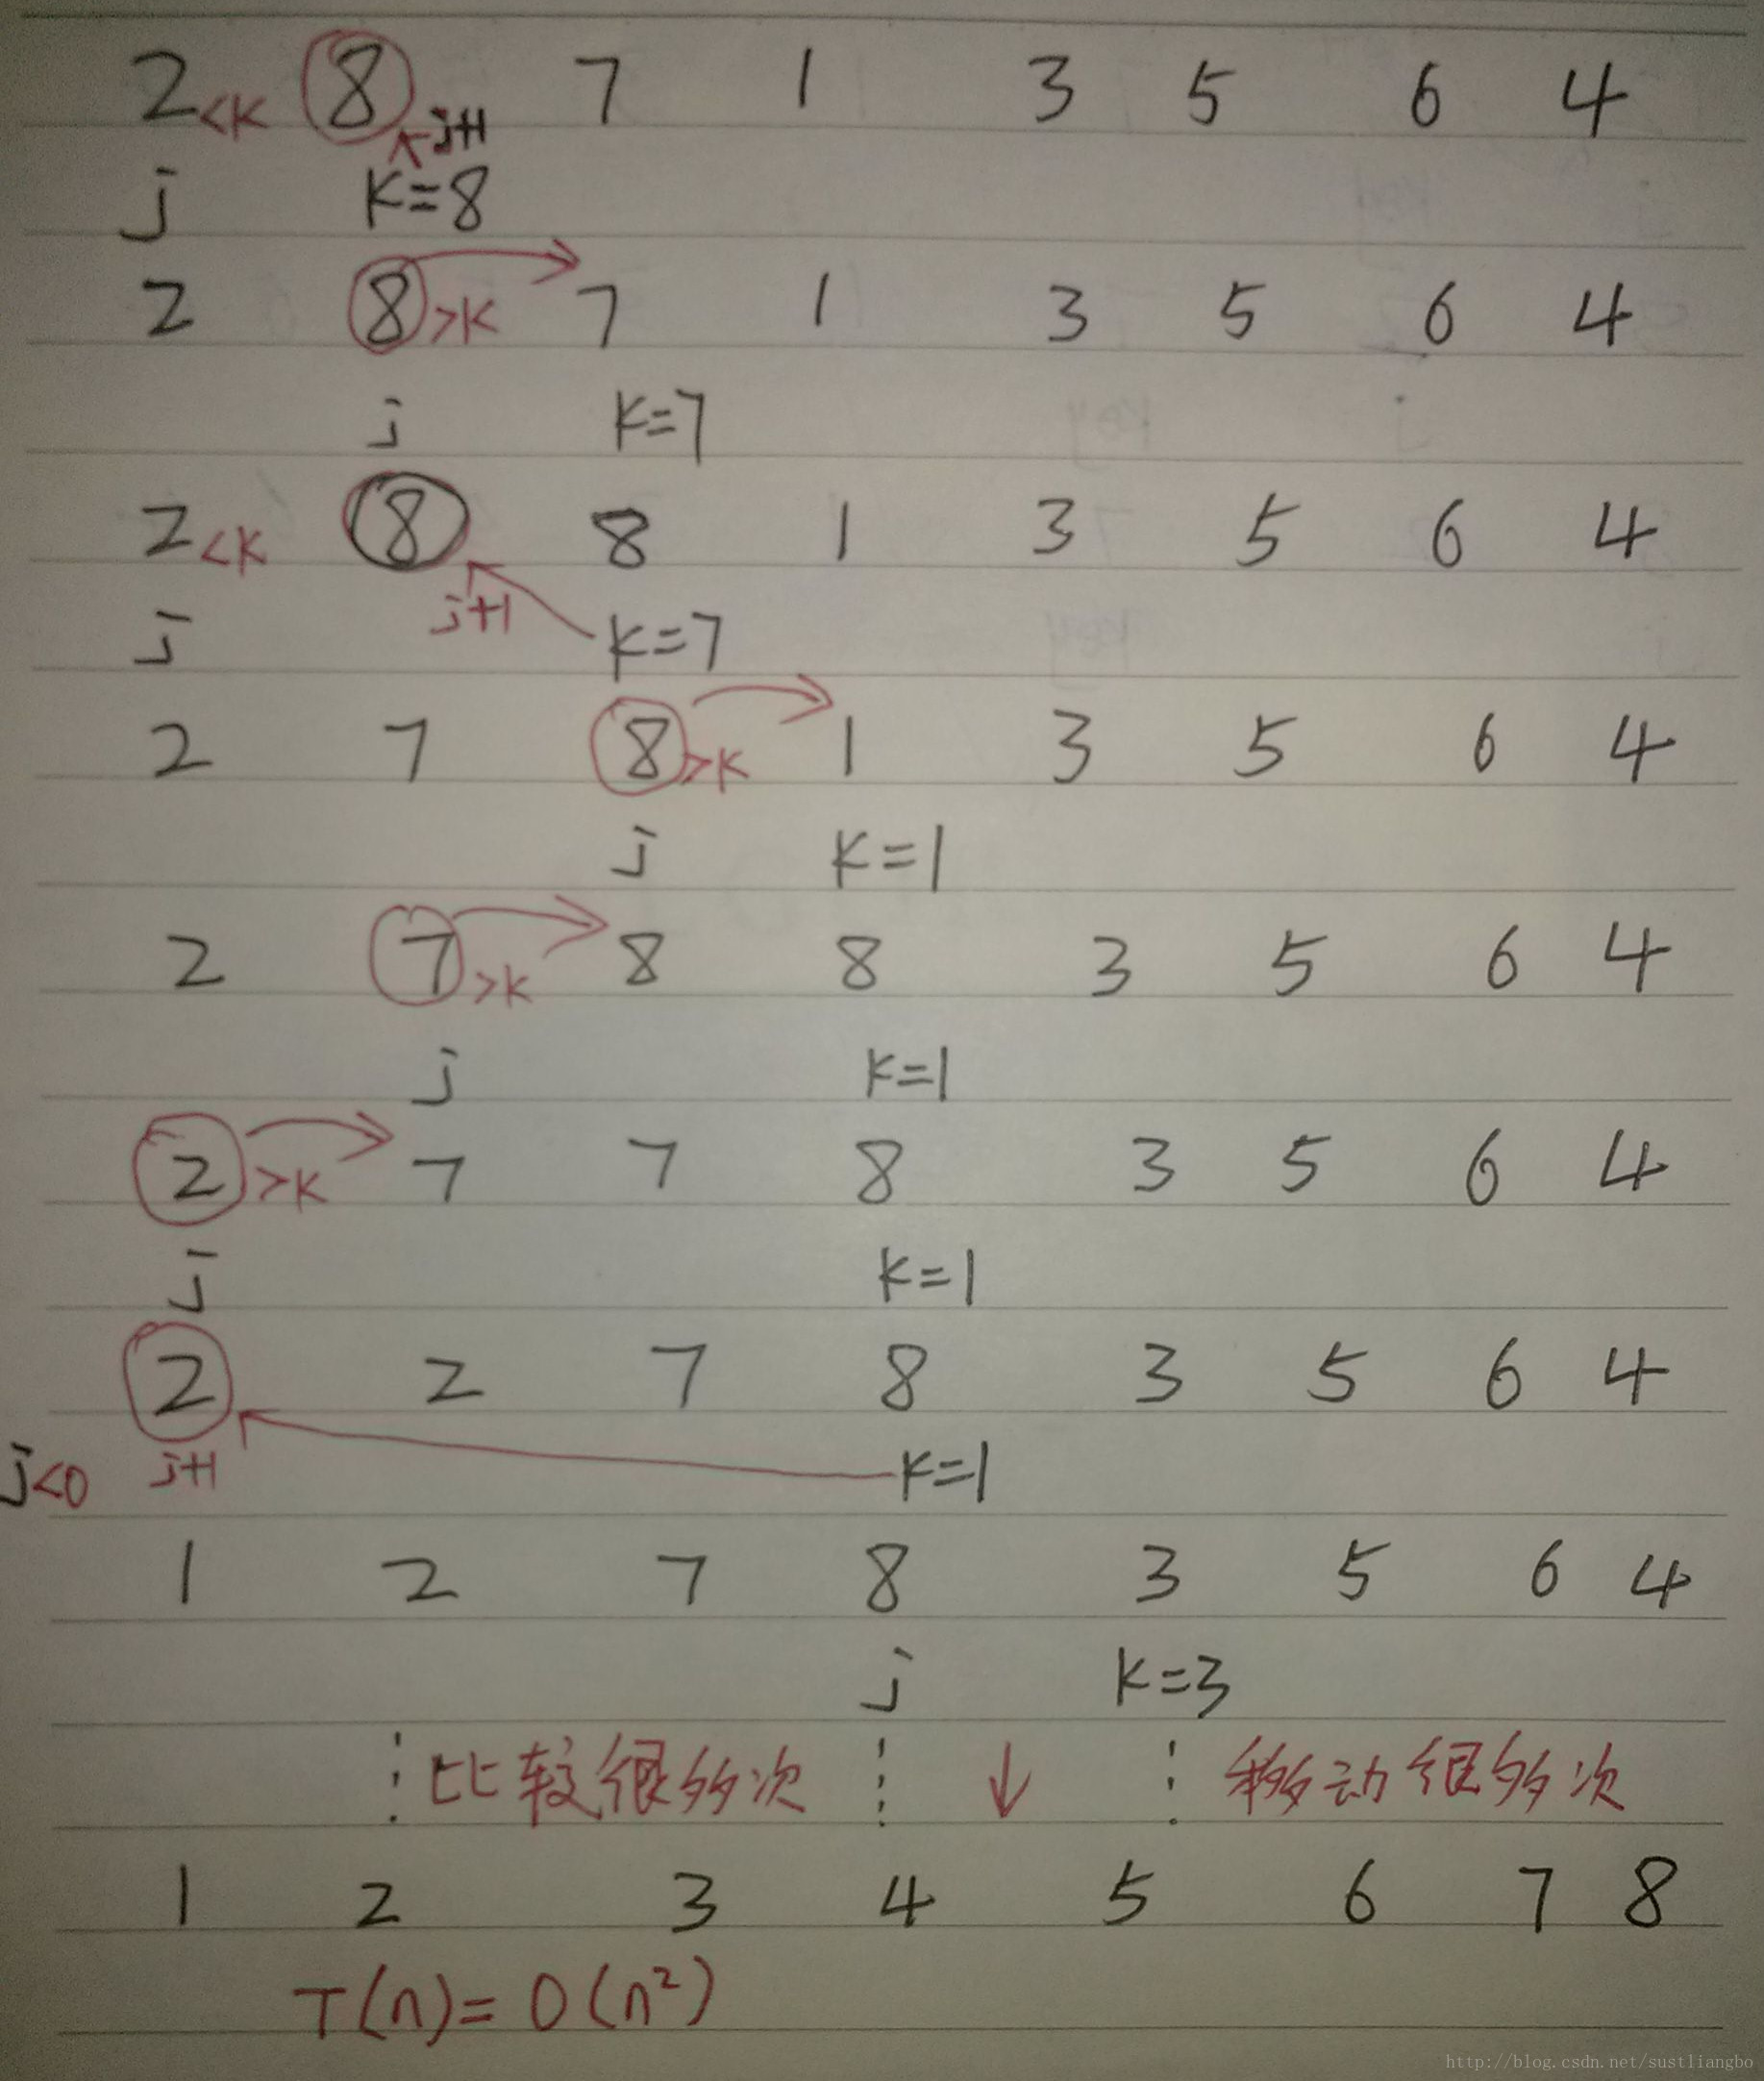 2 <K 8 7 1 3 5 6 4
j+1
j K=8
2 8 >K 7 1 3 5 6 4
j K=7
2 <K 8 8 1 3 5 6 4
j j+1 K=7
2 7 8 >K 1 3 5 6 4
j K=1
2 7 >K 8 8 3 5 6 4
j K=1
2 >K 7 7 8 3 5 6 4
j K=1
2 2 7 8 3 5 6 4
j<0 j+1 K=1
1 2 7 8 3 5 6 4
j K=3
比较很多次 ↓ 移动很多次
1 2 3 4 5 6 7 8
T(n)= O(n²)
http://blog.csdn.net/sustliangbo